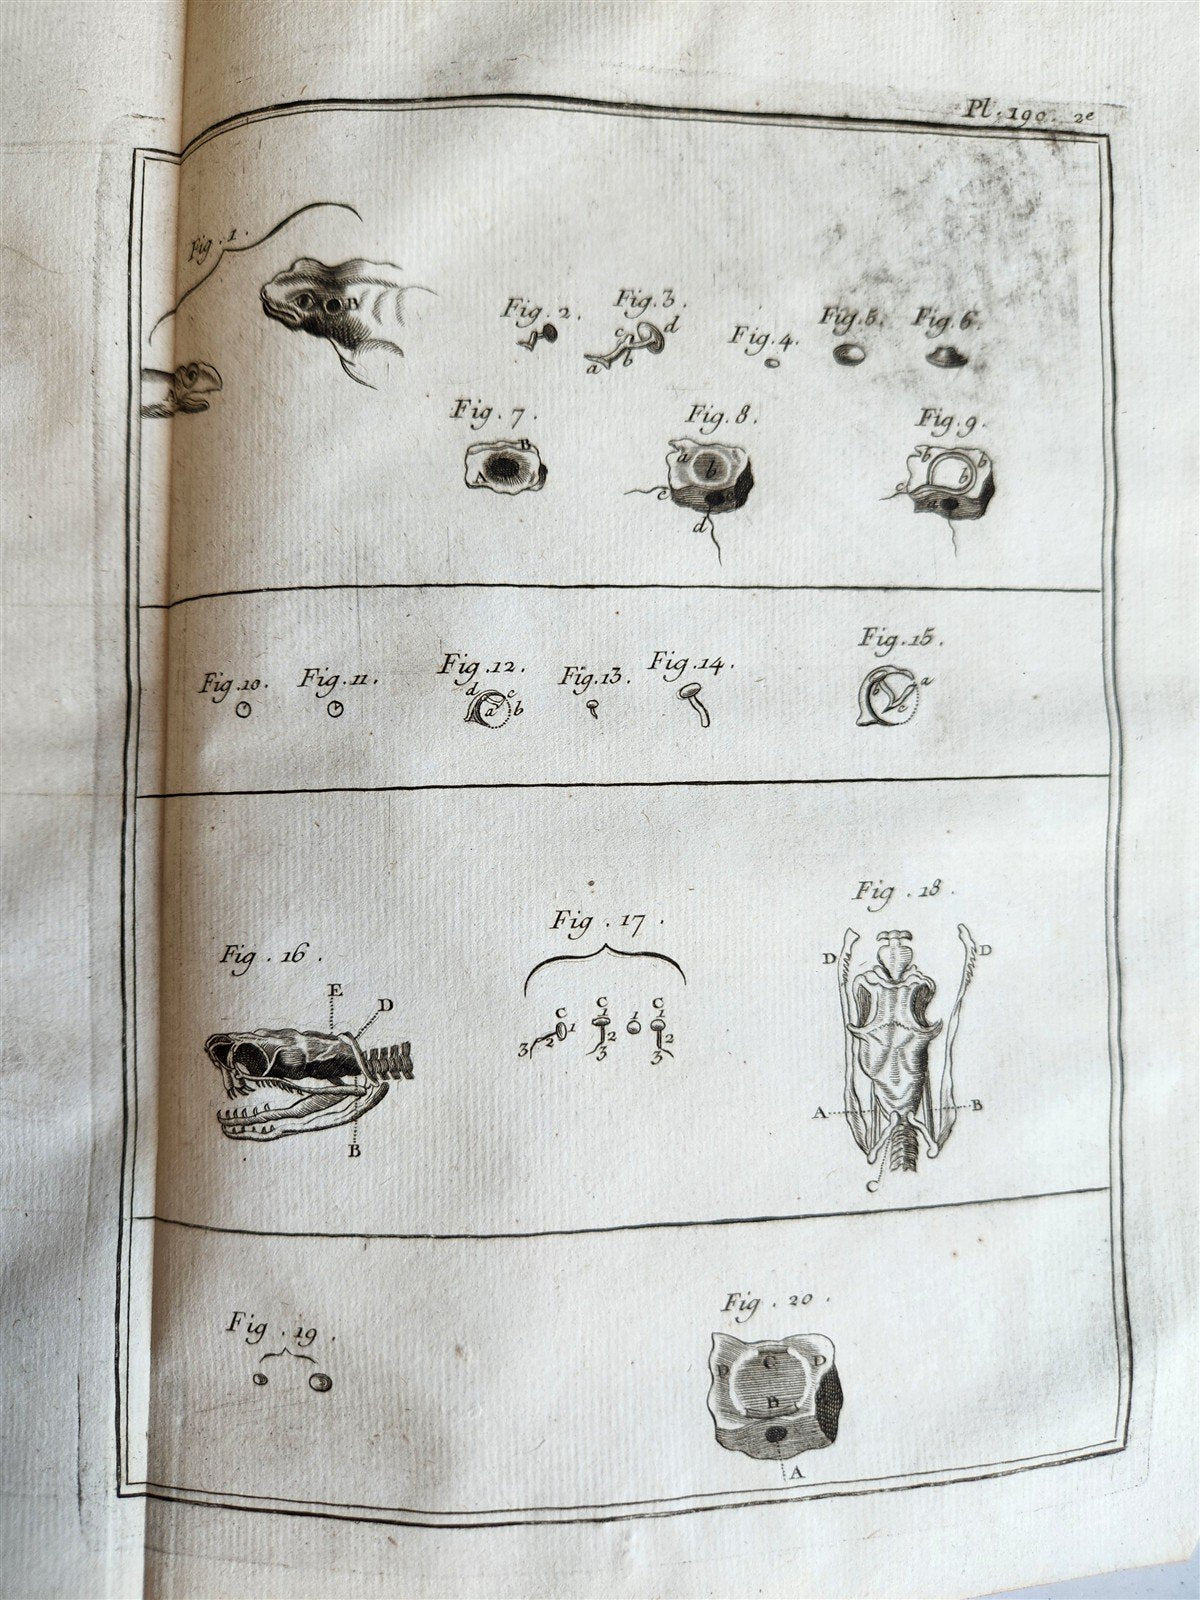 Pl. 190. 2e
Fig. 1.
B
A
Fig. 2.
Fig. 3.
c d
a b
Fig. 4.
Fig. 5.
Fig. 6.
Fig. 7.
B
A
Fig. 8.
a b
c
d
Fig. 9.
b b
b
c a
Fig. 10.
Fig. 11.
Fig. 12.
d c
a b
Fig. 13.
Fig. 14.
Fig. 15.
b a
c
Fig. 16.
E
D
B
Fig. 17.
C C 1 C
1 1 1
3 2 2 2
3 3
Fig. 18.
D D
A B
C
Fig. 19.
Fig. 20.
D C D
B
A